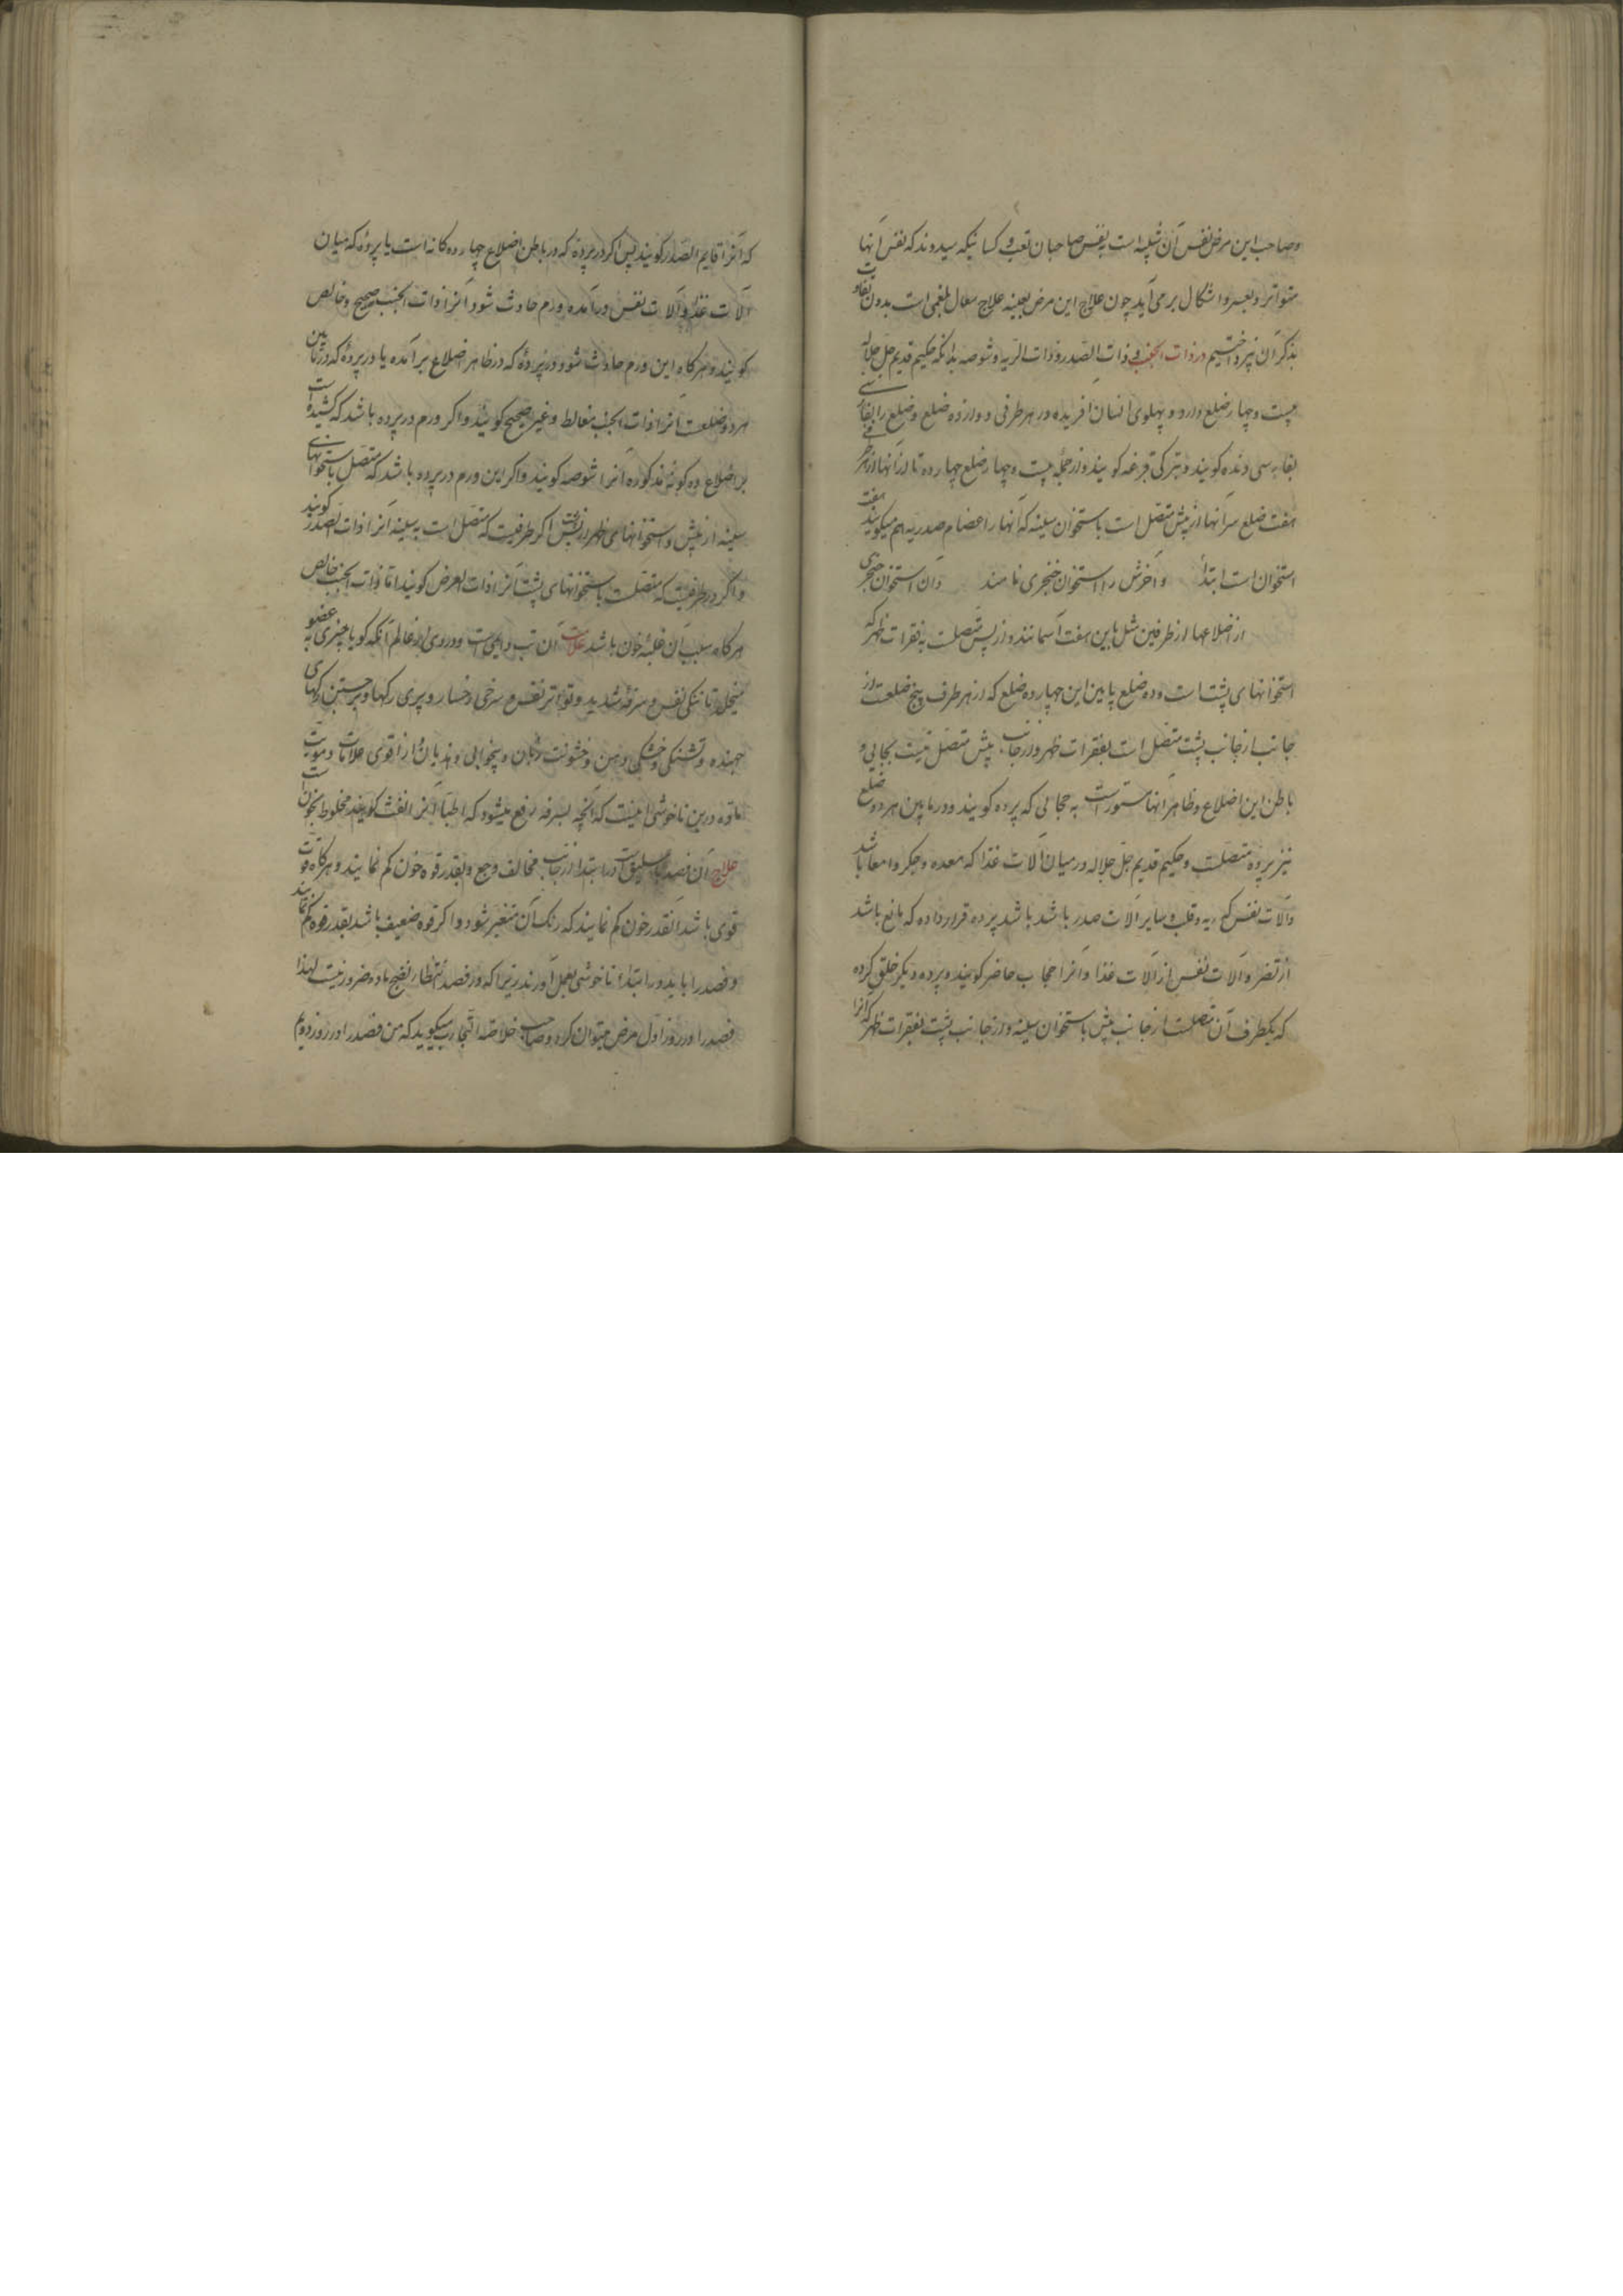 وصاحب این مرض نفس آن شبیه است به نفس صاحبان تعب و کسانیکه میدوند که نفس آنها
متواتر و بعسر و اشکال برمی آید چون علاج این مرض بعینه علاج سعال بلغمی است بدون تفاوت
بذکر آن نپرداختیم در ذات الجنب و ذات الصدر و ذات الریه و شوصه بدانکه حکیم قدیم جل جلاله
بیست و چهار ضلع در دو پهلوی انسان آفریده در هر طرفی دوازده ضلع و ضلع را بفارسی
دنده کویند و بترکی قبرغه کویند و از جمله بیست و چهار ضلع چهارده تا از آنها از هر طرفی
هفت ضلع سر آنها از پیش متصل است باستخوان سینه که آنها را عضام صدریه هم میکویند هفت
استخوان است ابتدا و آخرش را استخوان خنجری نامند و آن استخوان خنجری
از اضلاعها از طرفین مثل باین هفت آسمانند و از پس متصلست به فقرات ظهر که
استخوانهای پشت است و ده ضلع پایین این چهارده ضلع که از هر طرف پنج ضلعست از
جانب از جانب پشت متصل است بفقرات ظهر و از جانب پیش متصل نیست بجایی و
باطن این اضلاع و ظاهر آنها مستور است به حجابی که پرده کویند و در مابین هر دو ضلع
نیز پرده متصلست و حکیم قدیم جل جلاله در میان آلات غذا که معده و جکر و امعا باشد
و آلات نفس که ریه و قلب و سایر آلات صدر باشد باشد پرده قرار داده که مانع باشد
از تضرر آلات نفس از آلات غذا و آنرا حجاب حاضر کویند و پرده دیگر خلق کرده
که یکطرف آن متصلست از جانب پیش باستخوان سینه و از جانب پشت بفقرات ظهر که آنرا
که آنرا قایم الصدر کویند پس اکر در پرده که در باطن اضلاع چهارده کانه است یا پرده که میان
آلات غذا و آلات نفس درآمده ورم حادث شود آنرا ذات الجنب صحیح و خالص
کویند و هرکاه این ورم حادث شود در پرده که در ظاهر اضلاع برآمده یا در پرده که در مابین
هر دو ضلعست آنرا ذات الجنب مغالط و غیر صحیح کویند و اکر ورم در پرده باشد که کشیده است
بر اضلاع ده کونه مذکوره آنرا شوصه کویند و اکر این ورم در پرده باشد که متصل باستخوانهای
سینه از پیش و استخوانهای ظهر از پس است اکر طرفیست که متصل است به سینه آنرا ذات الصدر کویند
و اکر در طرفیست که متصلست باستخوانهای پشت آنرا ذات العرض کویند اما ذات الجنب خالص
هرکاه سبب آن غلبه خون باشد علامت آن تب دایمیست و دردی عالم آنکه کویا چیزی به عضو
میخلد تا تنکی نفس و سرفه شدید و تواتر نفس و سرخی رخسار و پری رکها و برجستن رکهای
جهنده و تشنکی و خشکی دهن و خشونت زبان و بیخوابی و هذیان و از اقوی علامات دمویت
ماده درین ناخوشی اینست که آنچه بسرفه رفع میشود که اطبا آنرا نفث کویند مخلوط بخون است
علاج آن فصد باسلیق است در ابتدا از جانب مخالف وجع و بقدر قوه خون کم نمایند و هرکاه قوت
قوی باشد آنقدر خون کم نمایند که رنک آن متغیر شود و اکر قوه ضعیف باشد بقدر قوه کم نمایند
و فصد را باید در ابتداء ناخوشی بعمل آورند زیرا که در فصد انتظار نضج ماده ضرور نیست لهذا
فصد را در روز اول مرض میتوان کرد و صاحب خلاصه التجارب میکوید که من فصد را در روز دویم